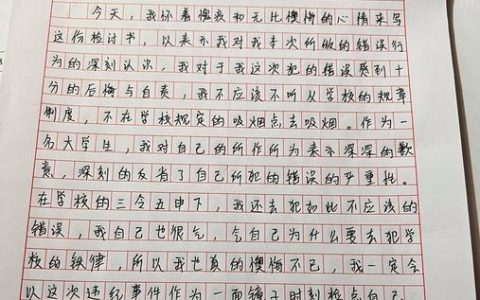 今天，我怀着愧疚和无比懊悔的心情来写
这份检讨书，以表示我对我本次所做的错误行
为的深刻认识，我对于我这次犯的错误感到十
分的后悔与自责，我不应该不听从学校的规章
制度，不在学校规定的吸烟点去吸烟。作为一
名大学生，我对自己的所作所为表示深深的歉
意，深刻的反省了自己所犯的错误的严重性。
在学校的三令五申下，我还去犯如此不应该的
错误，我自己也很气，气自己为什么要去犯学
校的铁律，所以我也万的懊悔不已，我一定会
以这次违纪事件作为一面镜子时刻检点自己